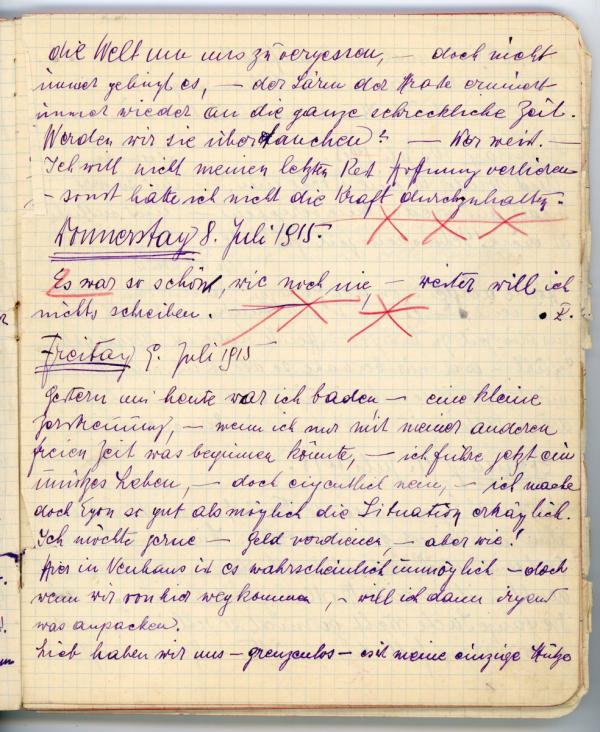 die Welt um uns zu vergessen, — doch nicht
immer gelingt es, — der Lärm der Straße erinnert
immer wieder an die ganze schreckliche Zeit.
Werden wir sie übertauchen? — Wer weiss. —
Ich will nicht meinen letzten Rest Hoffnung verlieren
— sonst hätte ich nicht die Kraft durchzuhalten.
Donnerstag 8. Juli 1915.
Es war so schön, wie noch nie, — weiter will ich
nichts schreiben.
Freitag 9. Juli 1915
Gestern und heute war ich baden — eine kleine
Zerstreuung, — wenn ich nur mit meiner anderen
freien Zeit was beginnen könnte, — ich führe jetzt ein
unnützes Leben, — doch eigentlich nein, — ich mache
doch Egon so gut als möglich die Situation erträglich.
Ich möchte gerne — Geld verdienen, — aber wie!
Hier in Neuhaus ist es wahrscheinlich unmöglich — doch
wenn wir von hier weg kommen, — will ich dann irgend
was anpacken.
Lieb haben wir uns — grenzenlos — ist meine einzige Stütze